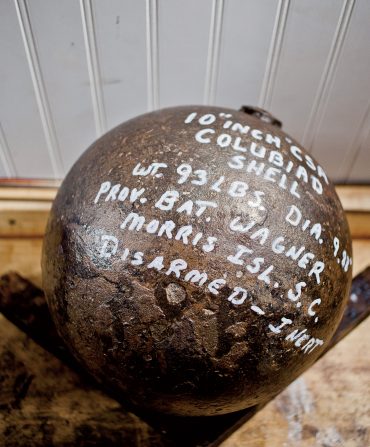 10" INCH CSA
COLUMBIAD
SHELL
WT. 93 LBS. DIA. 9.
PROV. BAT. WAGNER
MORRIS ISL. S.C.
DISARMED - INERT